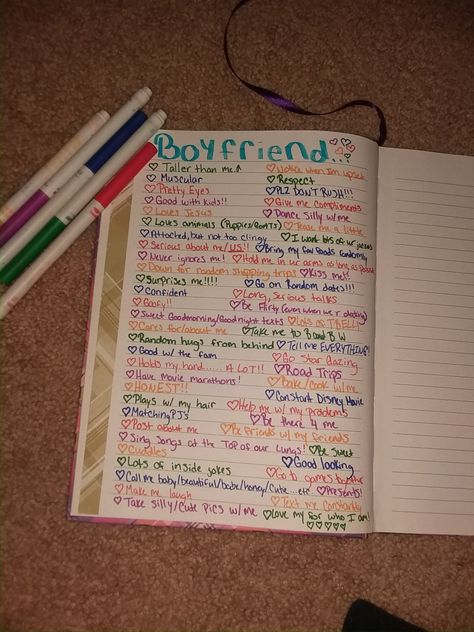 Boyfriend...
Taller than me Notice when I'm upset
Muscular Respect
Pretty Eyes PLZ DON'T RUSH!!!
Good with kids!! Give me compliments
Loves Jesus Dance Silly w/me
Loves animals (Puppies/ Tease me a little
Attached, but not too clingy I want lots of ur
Serious about me/US!! Bring my fav foods randomly
Never ignores me! Hold me in ur arms as long as
Down for random shopping trips Kiss me!!
Surprises me!!!! Go on Random dates!!!
Confident Long, Serious talks
Goofy!! Be Flirty (even when we r dating)
Sweet Goodmorning/Goodnight texts Lots of
Cares for/about me Take me to B and BW
Random hugs from behind Tell me EVERYTHING!
Good w/ the fam Go Star Gazing
Holds my hand...... A LOT!! Road Trips
Have movie marathons! Bake/Cook w/me
HONEST!! Constant Disney Movie
Plays w/ my hair Help me w/ my problems
Matching PJs Be there 4 me
Post about me Be friends w/ my friends
Sing Songs at the Top of our Lungs! Be Sweet
Cuddles Good looking
Lots of inside jokes Go to games together
Call me baby/beautiful/babe/honey/cutie...etc. Presents!
Make me laugh Text me Constantly
Take Silly/Cute Pics w/ me Love my for who I am!